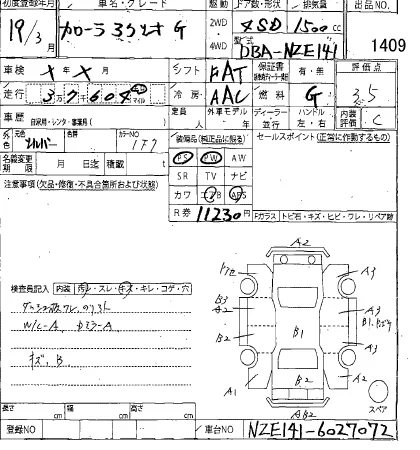 初度登録年月 車名・グレード 駆動 ドア数・形状 排気量 出品NO.
19/3月 カローラ アクシオ G 2WD 4SD 1500cc
4WD 型式 DBA-NZE141 1409
車検 X年X月 シフト FAT 保証書 有・無 評価点
走行 37604 マイル 冷房 AAC 燃料 G 3.5
車歴 自家用・レンタ・事業用( ) 定員 人 外車モデル 年 ディーラー 並行 ハンドル 左・右 内装評価 C
外色 元色 シルバー 色替 カラーNO 1F7 装備品(純正品に限る) セールスポイント(正常に作動するもの)
名義変更期限 月 日迄 積載 t PS PW AW
SR TV ナビ
注意事項(欠品・修復・不具合箇所および状態) カワ エアB ABS
R券 11230円 Fガラス トビ石・キズ・ヒビ・ワレ・リペア跡
A2
A3
B3
A2
B2
B1
A3
A1
B2
A2
AB2
検査員記入 内装 汚れ・スレ・キズ・キレ・コゲ・穴
W/C-A
キズ、B
スペア
長さ cm 幅 cm 高さ cm
登録NO 車台NO NZE141-6027072